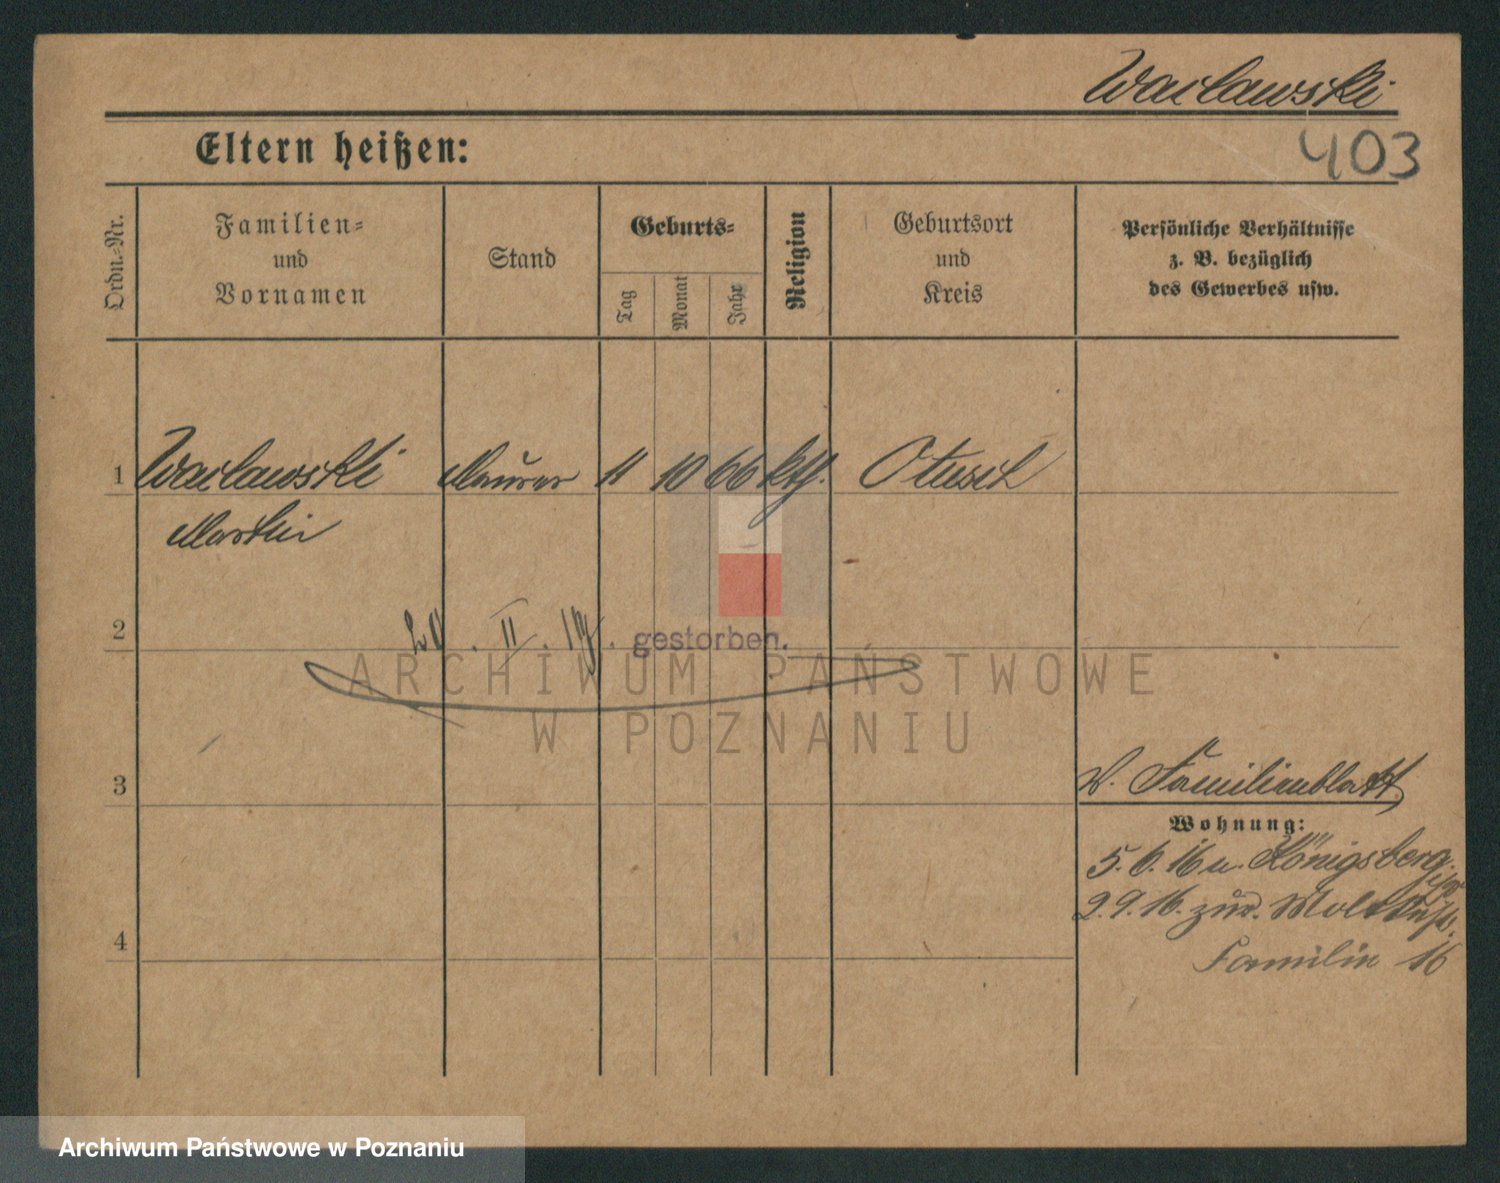 Waclawski
Eltern heißen:
403
Ordn.-Nr.
Familien-
und
Vornamen
Stand
Geburts-
Tag
Monat
Jahr
Religion
Geburtsort
und
Kreis
Persönliche Verhältnisse
z. B. bezüglich
des Gewerbes usw.
1 Waclawski Maurer 11 10 66 kth. Otusch
Martin
2
20. II. 17. gestorben.
ARCHIWUM PAŃSTWOWE
W POZNANIU
3
Familienblatt
Wohnung:
5. 6. 16 u. Königsberg
2. 9. 16. zur.
Familie 16
4
Archiwum Państwowe w Poznaniu